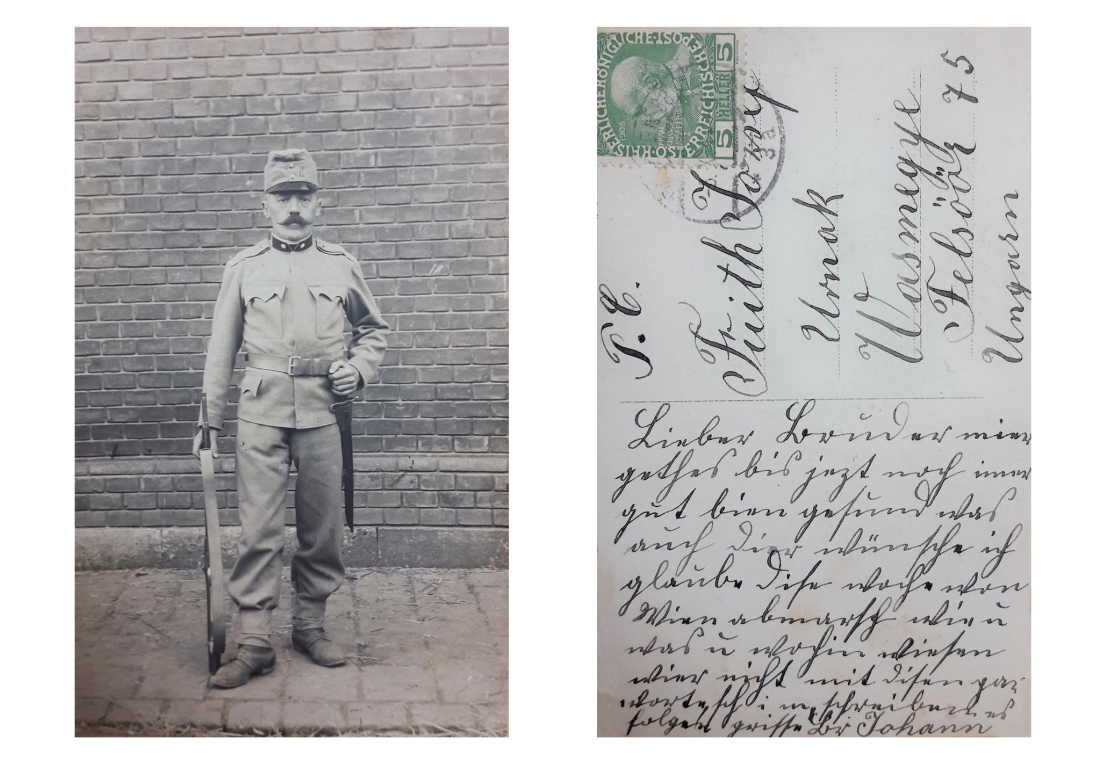 KAISERLICHEKÖNIGLICHE·ÖSTERREICHISCHE POST
5 HELLER 5
1908
T. C.
Frith
Urnak
Wasmegye
Felsöőr 75
Ungarn
Lieber Bruder mier
gethes bis jezt noch imer
gut bien gesund was
auch dier wünsche ich
glaube dise woche won
Wien abmarsch wie u
was u wohin wiesen
wier nicht mit disen par
worte schreiben es
folgen grisse Br Johann